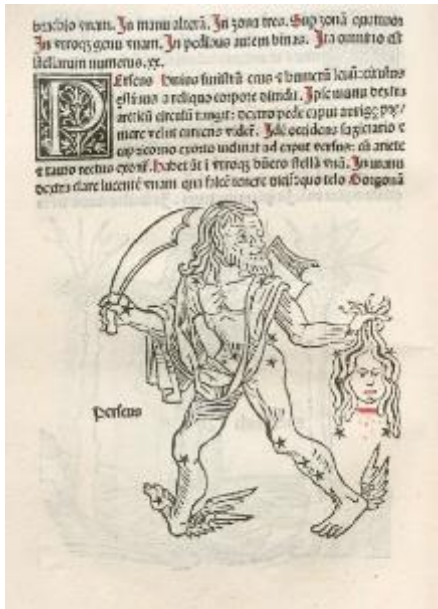 brachio vnam. In manu alterā. In zona tres. Sup zonā quattuor
In vtroqȝ genu vnam. In pedibus autem binas. Ita omnino est
stellarum numerus. xx.
PErseus huius sinistrū crus ⁊ humerū leuū: circulus
estiuus a reliquo corpore diuidit. Ipse manu dextra
arcticū circulū tangit: dextro pede caput aurige
mere velut currens videt̄. Idē occidens sagittario ⁊
capricorno exorto inclinat̄ ad caput versus: cū ariete
⁊ tauro rectus exorit̄. Habet āt ī vtroqȝ hūero stellā vnā. In manu
dextra clare lucentē vnam qua falcē tenere dicit̄: quo telo Gorgonā
Perseus